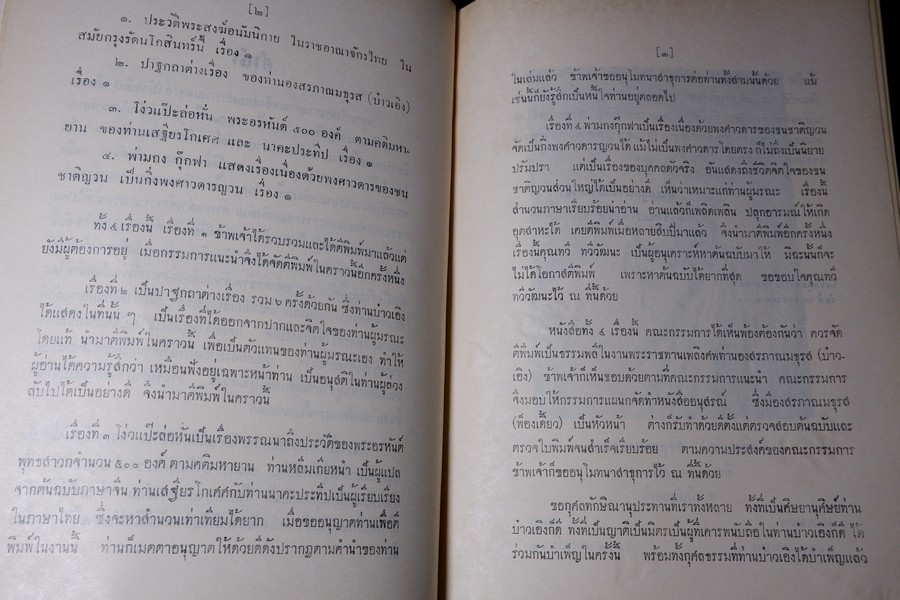 [๒]
๑. ประวัติพระสงฆ์อนัมนิกาย ในราชอาณาจักรไทย ใน
สมัยกรุงรัตนโกสินทร์นี้ เรื่อง ๑
๒. ปาฐกถาต่างเรื่อง ของท่านองสรภาณมธุรส (บ๋าวเอิง)
เรื่อง ๑
๓. โง่วแป๊ะล่อหั่น พระอรหันต์ ๕๐๐ องค์ ตามคติมหา-
ยาน ของท่านเสฐียรโกเศศ และ นาคะประทีป เรื่อง ๑
๔. พ่ามกง กุ๊กฟา แสดงเรื่องเนื่องด้วยพงศาวดารของชน
ชาติญวน เป็นกิ่งพงศาวดารญวน เรื่อง ๑
ทั้ง ๔ เรื่องนี้ เรื่องที่ ๑ ข้าพเจ้าได้รวบรวมและได้ตีพิมพ์มาแล้วแต่
ยังมีผู้ต้องการอยู่ เมื่อกรรมการแนะนำจึงได้จัดตีพิมพ์ในคราวนี้อีกครั้งหนึ่ง
เรื่องที่ ๒ เป็นปาฐกถาต่างเรื่อง รวม ๖ ครั้งด้วยกัน ซึ่งท่านบ๋าวเอิง
ได้แสดงในที่นั้น ๆ เป็นเรื่องที่ได้ออกจากปากและจิตใจของท่านผู้มรณะ
โดยแท้ นำมาตีพิมพ์ในคราวนี้ เพื่อเป็นตัวแทนของท่านผู้มรณะเอง ทำให้
ผู้อ่านได้ความรู้สึกว่า เหมือนฟังอยู่เฉพาะหน้าท่าน เป็นอนุสติในท่านผู้ล่วง
ลับไปได้เป็นอย่างดี จึงนำมาตีพิมพ์ในคราวนี้
เรื่องที่ ๓ โง่วแป๊ะล่อหั่นเป็นเรื่องพรรณนาถึงประวัติของพระอรหันต์
พุทธสาวกจำนวน ๕๐๐ องค์ ตามคติมหายาน ท่านหลิ่มเกี่ยหน่ำ เป็นผู้แปล
จากต้นฉบับภาษาจีน ท่านเสฐียรโกเศศกับท่านนาคะประทีปเป็นผู้เรียบเรียง
ในภาษาไทย ซึ่งจะหาสำนวนเท่าเทียมได้ยาก เมื่อขออนุญาตท่านเพื่อตี
พิมพ์ในงานนี้ ท่านก็เมตตาอนุญาตให้ด้วยดีดังปรากฏตามคำนำของท่าน
[๓]
ในเล่มแล้ว ข้าพเจ้าขออนุโมทนาสาธุการต่อท่านทั้งสามนั้นด้วย แม้
เช่นนั้นก็ยังรู้สึกเป็นหนี้ใจท่านอยู่ตลอดไป
เรื่องที่ ๔ พ่ามกงกุ๊กฟาเป็นเรื่องเนื่องด้วยพงศาวดารของชนชาติญวน
จัดเป็นกิ่งพงศาวดารญวนได้ แม้ไม่เป็นพงศาวดารโดยตรง ก็ไม่ถึงเป็นนิยาย
ปรัมปรา แต่เป็นเรื่องของบุคคลตัวจริง อันแสดงถึงชีวิตจิตใจของชน
ชาติญวนส่วนใหญ่ได้เป็นอย่างดี เห็นว่าเหมาะแก่ท่านผู้มรณะ เรื่องนี้
สำนวนภาษาเรียบร้อยน่าอ่าน อ่านแล้วก็เพลิดเพลิน ปลุกอารมณ์ให้เกิด
อุตสาหะได้ เคยตีพิมพ์เมื่อหลายสิบปีมาแล้ว จึงนำมาตีพิมพ์อีกครั้งหนึ่ง
เรื่องนี้คุณทวี ทวีวัฒนะ เป็นผู้อนุเคราะห์หาต้นฉบับมาให้ มิฉะนั้นก็จะ
ไม่ได้โอกาสตีพิมพ์ เพราะหาต้นฉบับได้ยากที่สุด ขอขอบใจคุณทวี
ทวีวัฒนะไว้ ณ ที่นี้ด้วย
หนังสือทั้ง ๔ เรื่องนี้ คณะกรรมการได้เห็นพ้องต้องกันว่า ควรจัด
ตีพิมพ์เป็นธรรมพลีในงานพระราชทานเพลิงศพท่านองสรภาณมธุรส (บ๋าว-
เอิง) ข้าพเจ้าก็เห็นชอบด้วยตามที่คณะกรรมการแนะนำ คณะกรรมการ
จึงมอบให้กรรมการแผนกจัดทำหนังสืออนุสรณ์ ซึ่งมีองสรภาณมธุรส
(พ็องเดี๋ยว) เป็นหัวหน้า ต่างก็รับทำด้วยดีตั้งแต่ตรวจสอบต้นฉบับและ
ตรวจใบพิมพ์จนสำเร็จเรียบร้อย ตามความประสงค์ของคณะกรรมการ
ข้าพเจ้าก็ขออนุโมทนาสาธุการไว้ ณ ที่นี้ด้วย
ขอกุศลทักษิณานุประทานที่เราทั้งหลาย ทั้งที่เป็นศิษยานุศิษย์ท่าน
บ๋าวเอิงก็ดี ทั้งที่เป็นญาติเป็นมิตรเป็นผู้ที่เคารพนับถือในท่านบ๋าวเอิงก็ดี ได้
ร่วมกันบำเพ็ญในครั้งนี้ พร้อมทั้งกุศลธรรมที่ท่านบ๋าวเอิงได้บำเพ็ญแล้ว